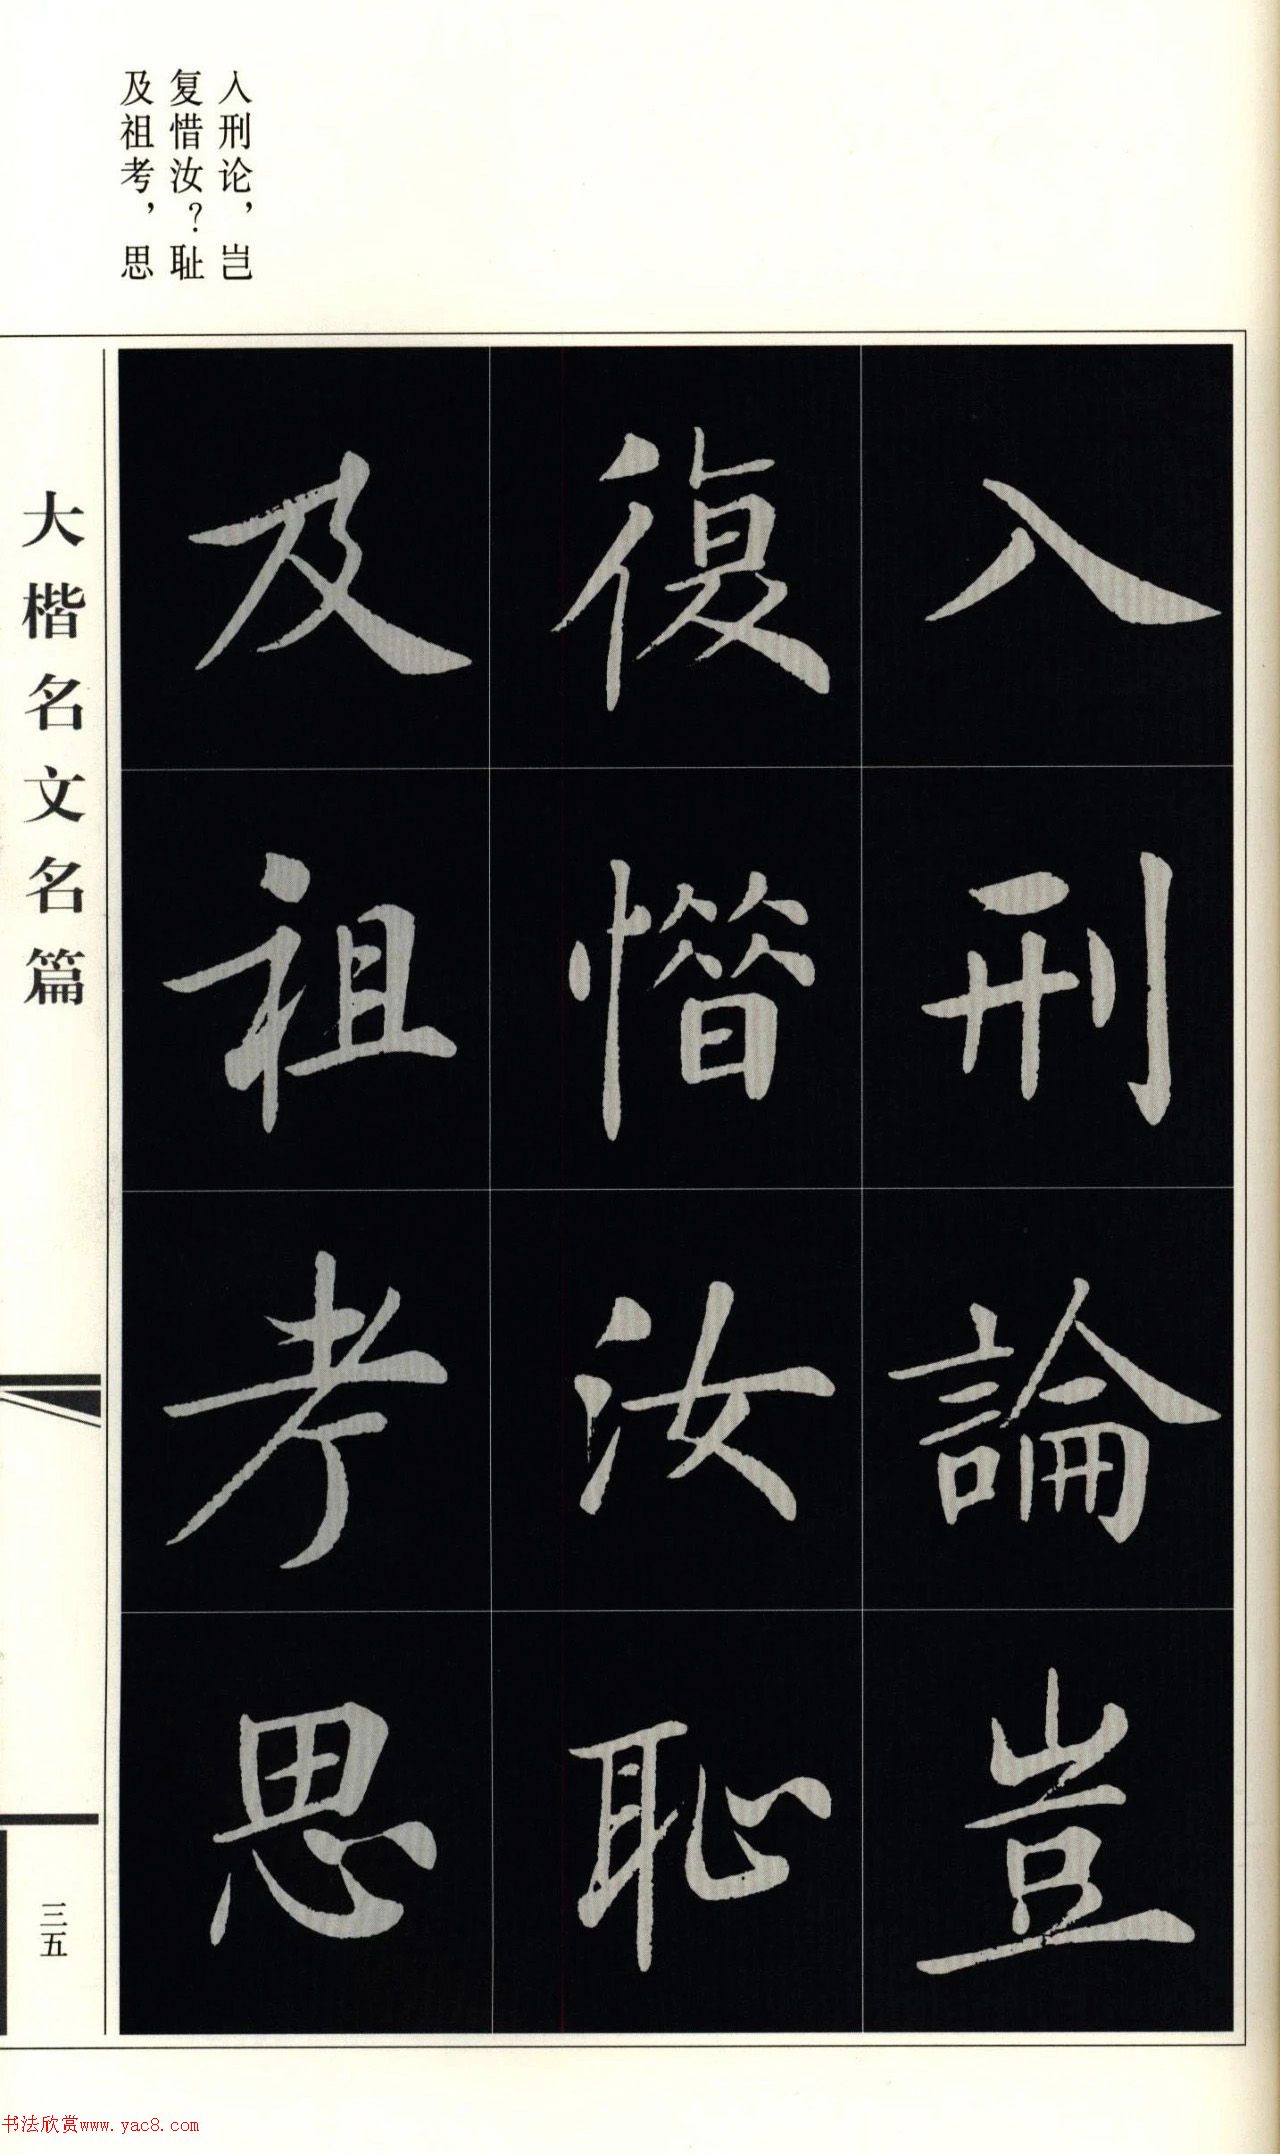 入刑论，岂
复惜汝？耻
及祖考，思
入刑論豈
復惜汝恥
及祖考思
大楷名文名篇
三五
书法欣赏www.yac8.com